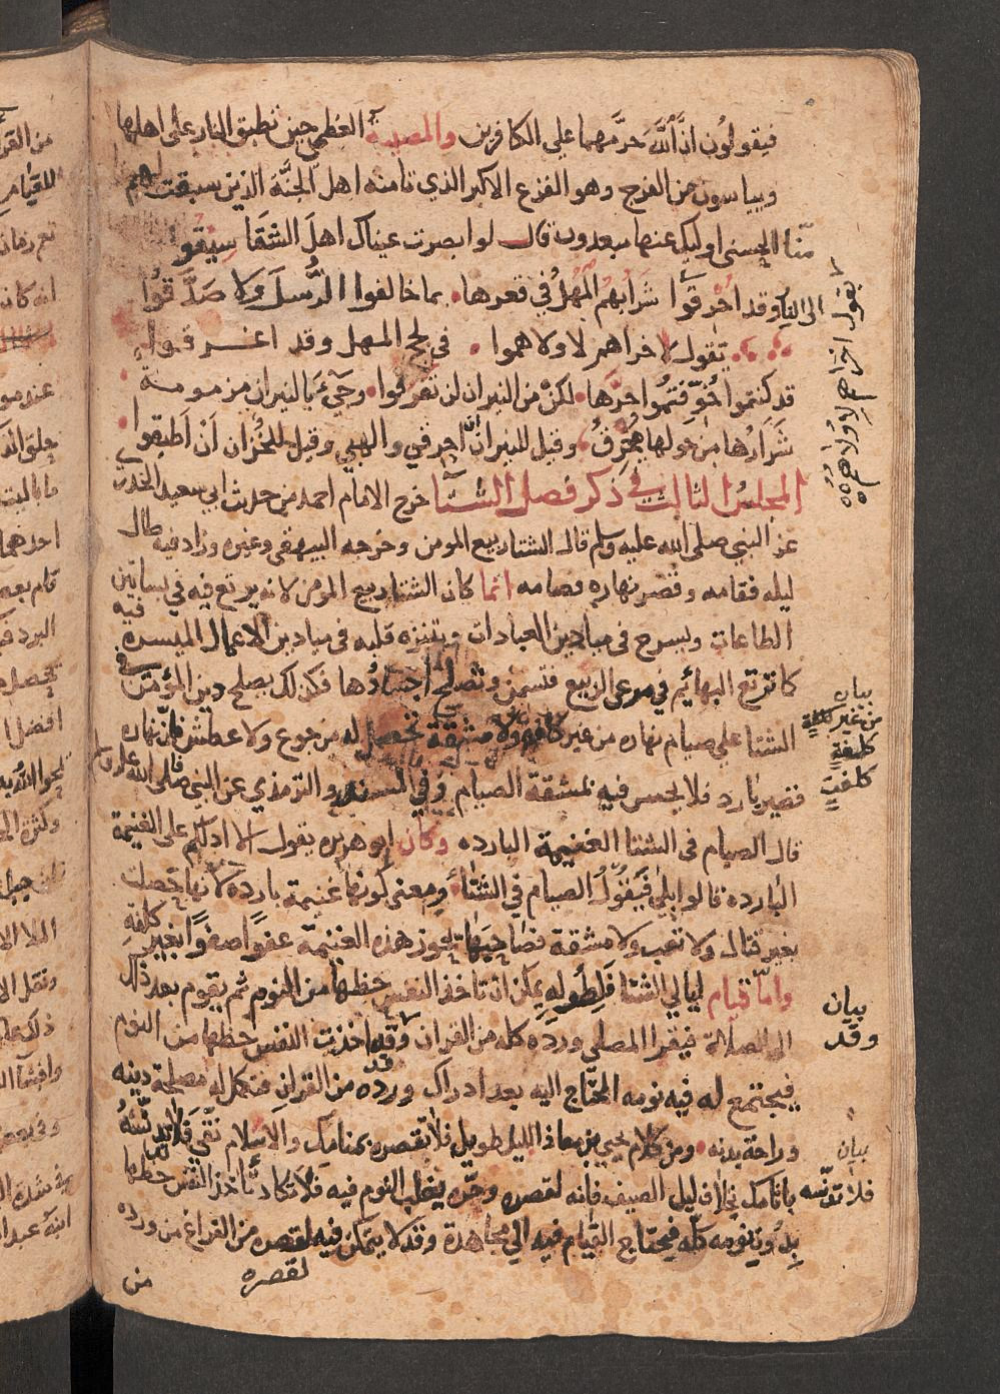 فيقولون ان الله حرمهما علي الكافرين والمصيبة العظمي حين تطبق النار علي اهلها
وييأسون من الفرج وهو الفزع الاكبر الذي تامنه اهل الجنة الذين سبقت لهم
منا الحسنى اوليك عنها مبعدون قال لو ابصرت عيناك اهل الشقا سيقوا
الى النار وقد احرقوا شرابهم المهل في قعرها بما خالفوا الرسل ولا صدقوا
تقول لاخراهم لاولاهموا في لجج المهل وقد اغرقوا
قد كنتموا خوفتموا حرها لكن من النيران لن تفرقوا وجيء بالنيران مزمومة
شرارها من حولها محرق وقيل للنيران ان احرقي والهبي وقيل للخزان ان اطبقوا
المجلس الثالث في ذكر فصل الشتا خرج الامام احمد من حديث ابي سعيد الخدري
عن النبي صلى الله عليه وسلم قال الشتا ربيع المومن وخرجه البيهقي وغيره وزاد فيه طال
ليله فقامه وقصر نهاره فصامه انما كان الشتا ربيع المومن لانه يرتع فيه في بساتين
الطاعات ويسرح في ميادين العبادات ويتنزه قلبه في ميادين الاعمال الميسره فيه
كما ترتع البهائم في مرعى الربيع فتسمن وتصلح اجسادها فكذلك يصلح دين المؤمن في
الشتا علي صيام نهاره من غير كلفة ولا مشقة تحصل له من جوع ولا عطش فان نهاره
قصير بارد فلا يحس فيه بمشقة الصيام وفي المسند والترمذي عن النبي صلى الله عليه وسلم
قال الصيام في الشتا الغنيمة البارده وكان ابو هريره يقول الا ادلكم على الغنيمة
البارده قالوا بلى فيقول الصيام في الشتاء ومعنى كونها غنيمة بارده لانها حصلت
بغير قتال ولا تعب ولا مشقة فصاحبها يحوز هذه الغنيمة عفوا صفوا بغير كلفة
واما قيام ليالي الشتا فلطوله يمكن ان تاخذ النفس حظها من النوم ثم يقوم بعد ذلك
الى الصلاة فيقرا المصلي ورده كله من القران وقد اخذت النفس حظها من النوم
فيجتمع له فيه نومه المحتاج اليه بعد ادراك ورده من القران فتكمل له مصلحة دينه
وراحة بدنه ومن كلام يحيى بن معاذ الليل طويل فلا تقصره بمنامك والاسلام نقي فلا تدنسه
باثامك بخلاف ليل الصيف فانه لقصره وحره يغلب النوم فيه فلا تكاد تاخذ النفس حظها
بدون نومه كله فيحتاج القيام فيه الي مجاهدة وقد لا يتمكن فيه لقصره من الفراغ من ورده
لقصره
من
يقول اخراهم لاولاهم
بيان
من غير كلفة
كلفة
كلفت
بيان
وقد
بيان
فلا تدنسه